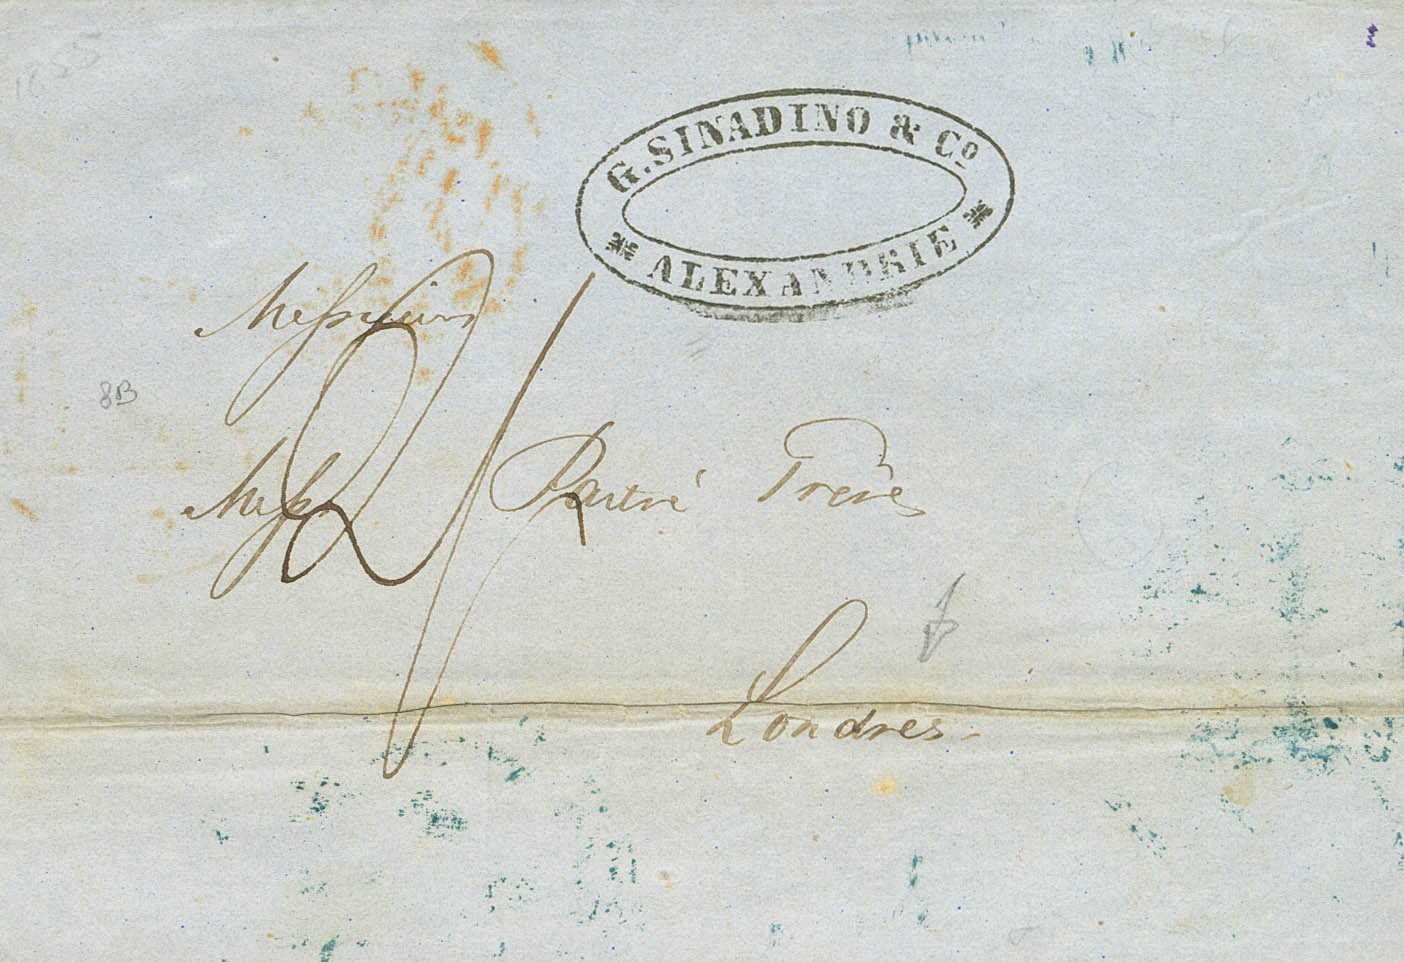 1855
G. SINADINO & Cº
ALEXANDRIE
Messieurs
8B
Mess Frères
2/
Londres